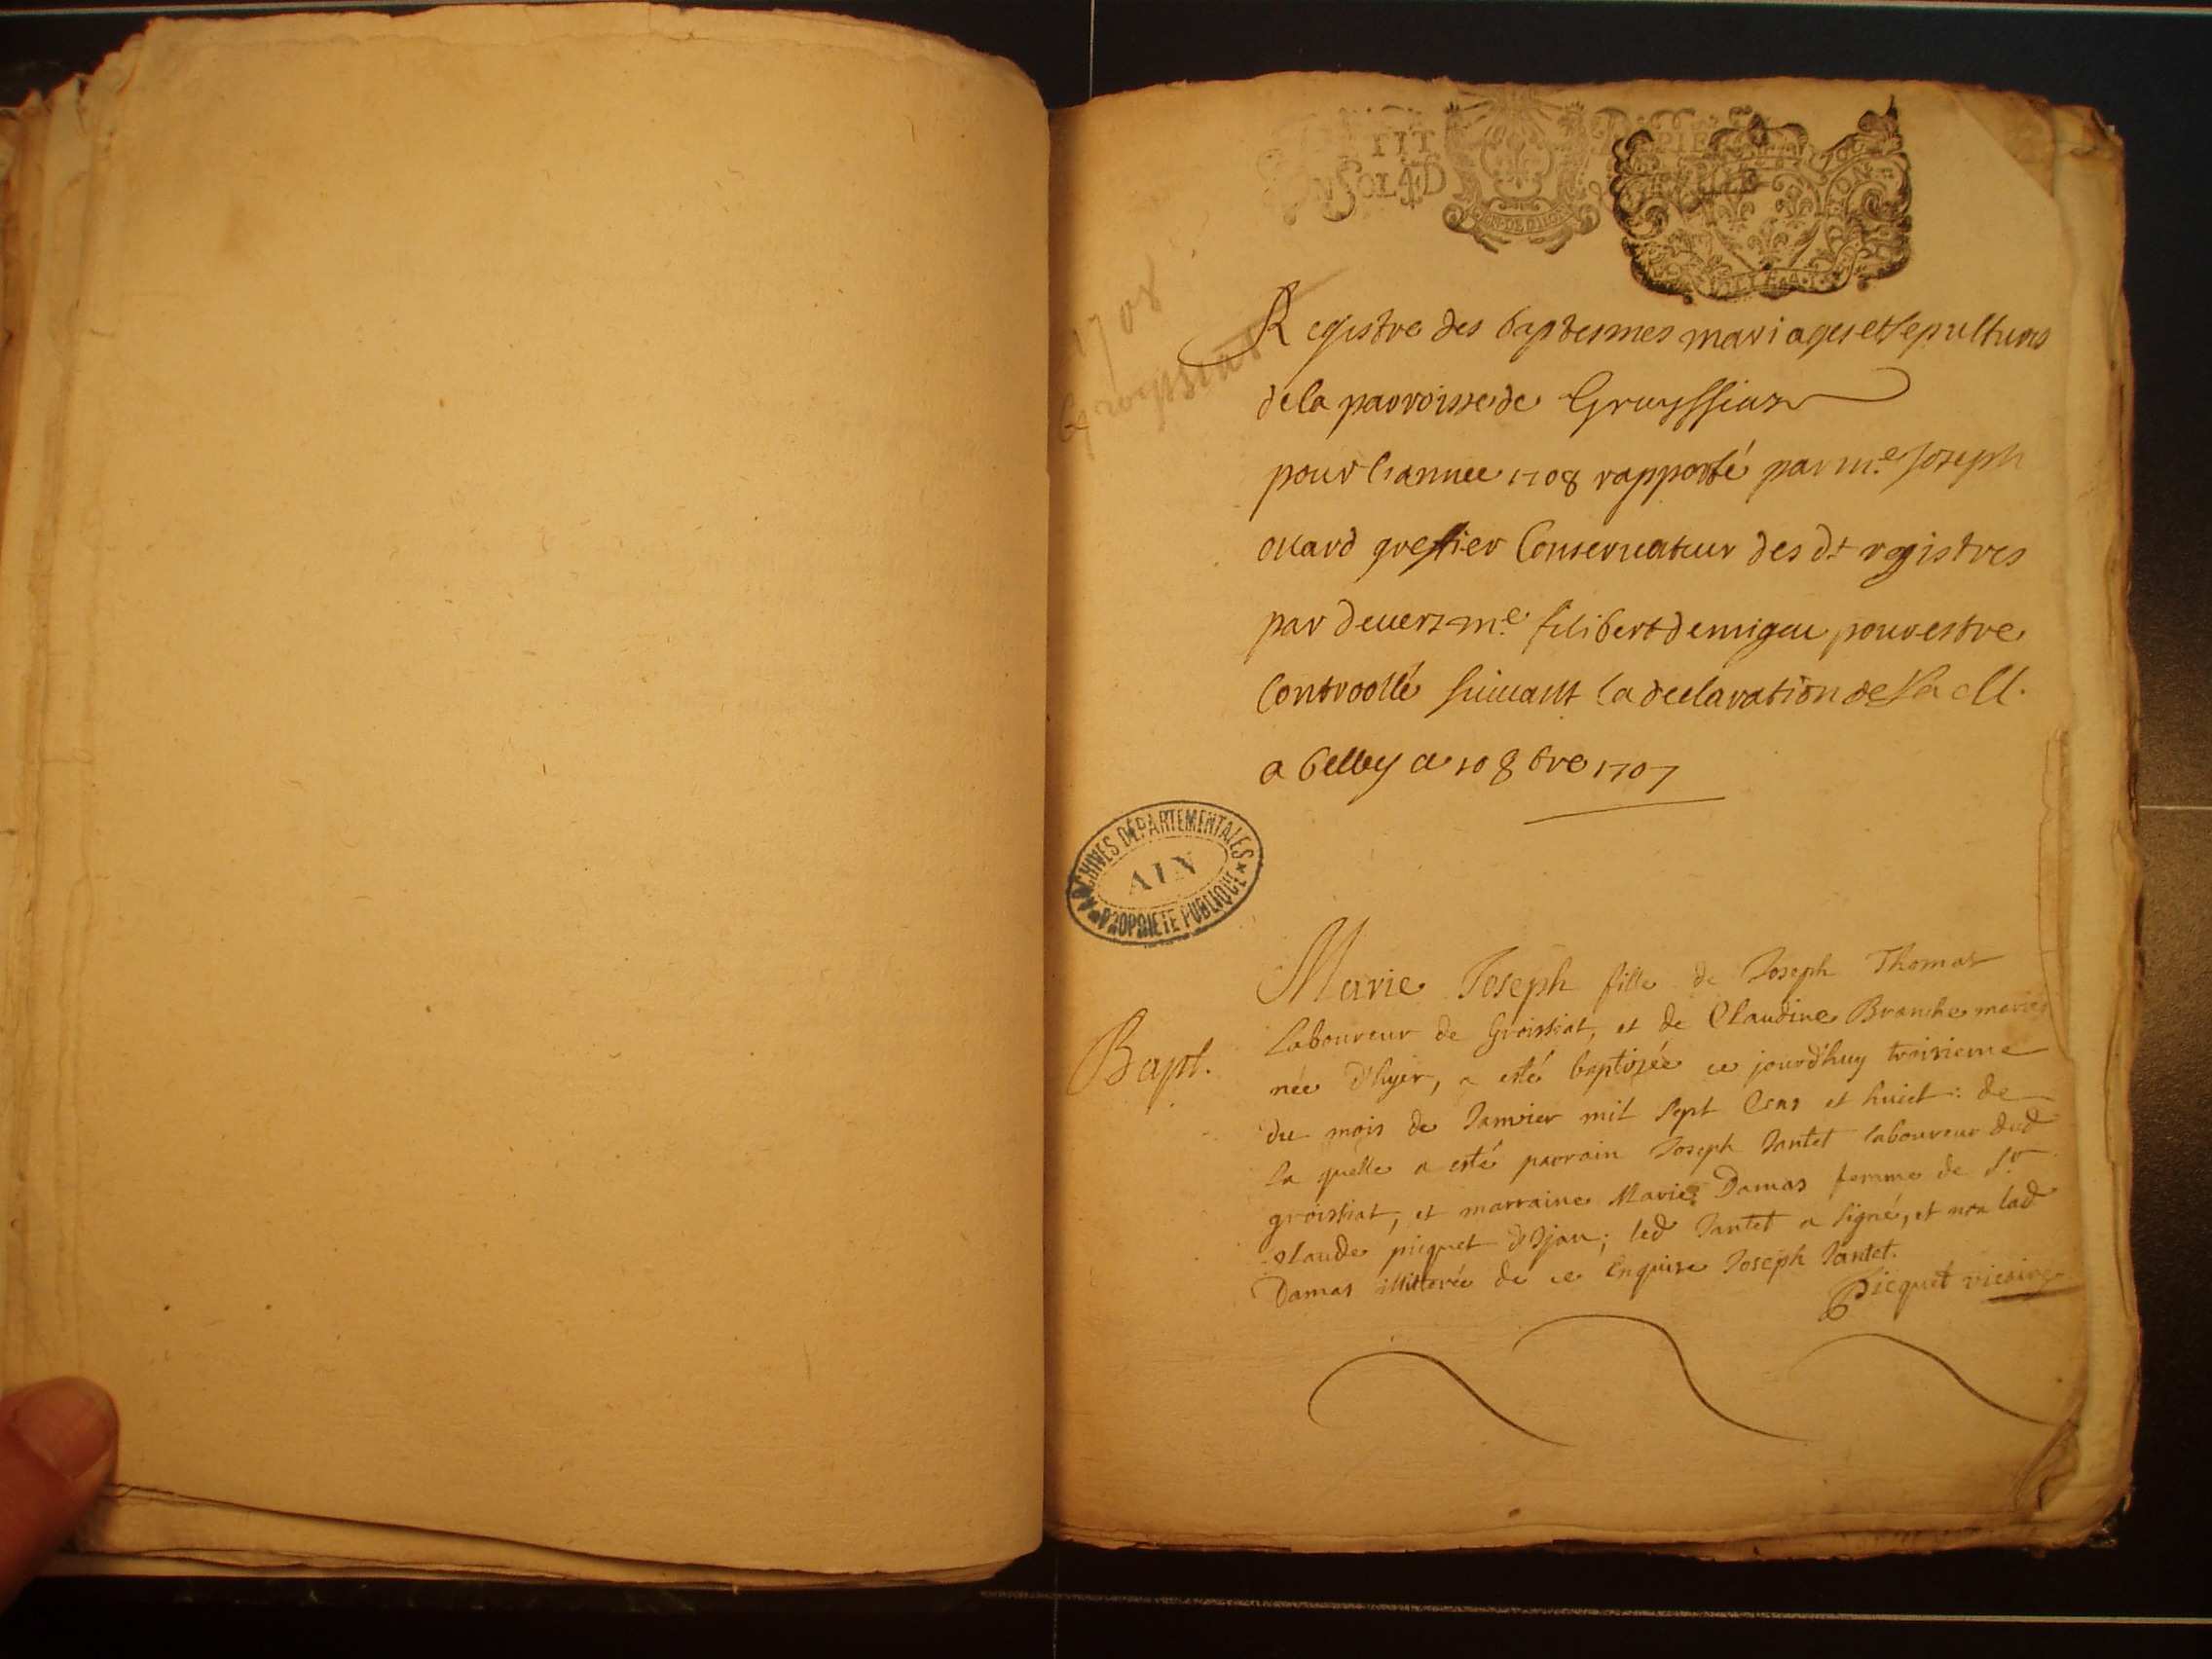 TIT
SOL 4 D
1708
Groyssiat
Registre des baptesmes mariages et sepultures
de la parroisse de Gruyssiaz
pour l'annee 1708 rapporté par me. Joseph
greffier Conservateur des dt registres
par devers me. filibert demigeu pour estre
Controollé suiuant la declaration de Sa M.
a belley ce 10 8bre 1707
ARCHIVES DÉPARTEMENTALES
AIN
PROPRIÉTÉ PUBLIQUE
Bapt.
Marie Joseph fille de Joseph Thomas
laboureur de Groissiat, et de Claudine Branche mariés
née d'hyer, a esté baptizée ce jourd'huy troisieme
du mois de Janvier mil sept Cens et huict : de
la quelle a esté parrain Joseph Jantet laboureur dud
groissiat, et marraine Marie Damas femme de Sr.
Claude piquet d'Ijau; led Jantet a signé, et non lad
Damas illitterée de ce Enquise Joseph Jantet.
Picquet vicaire